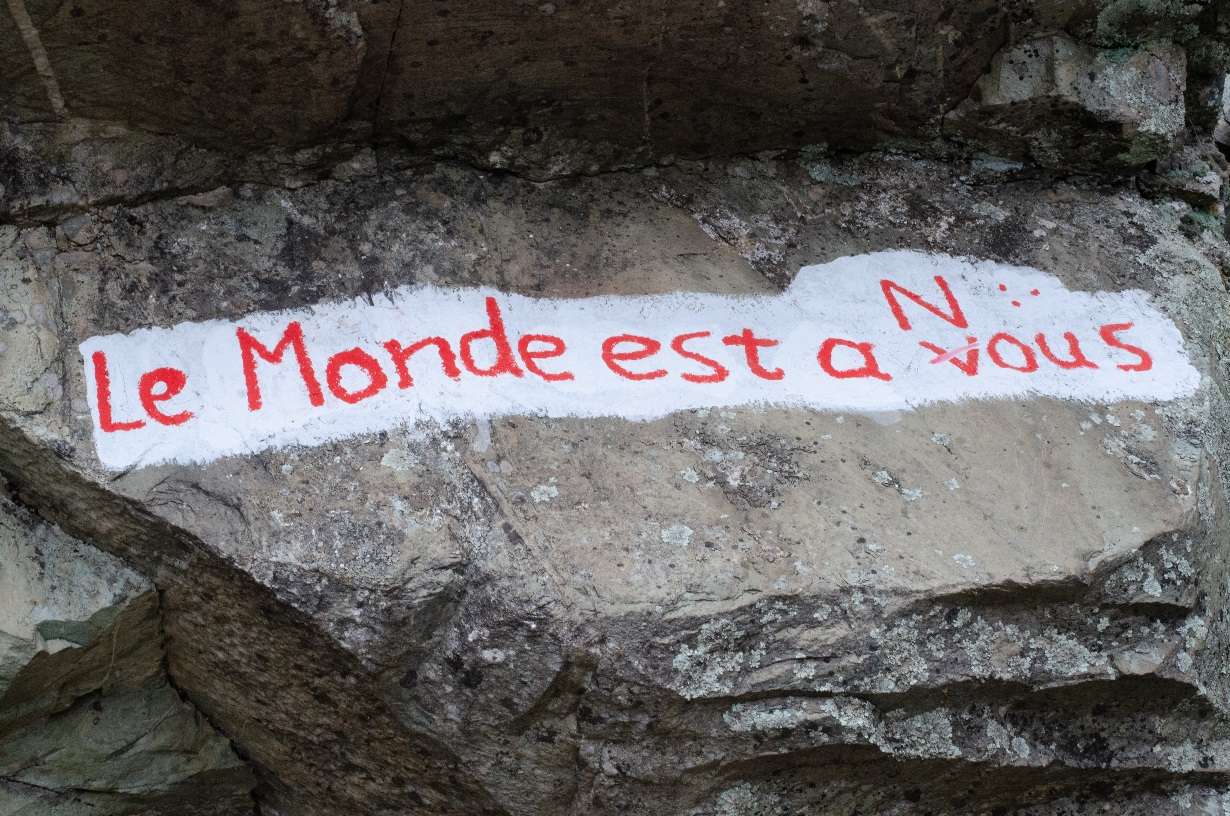 Le Monde est a Nous